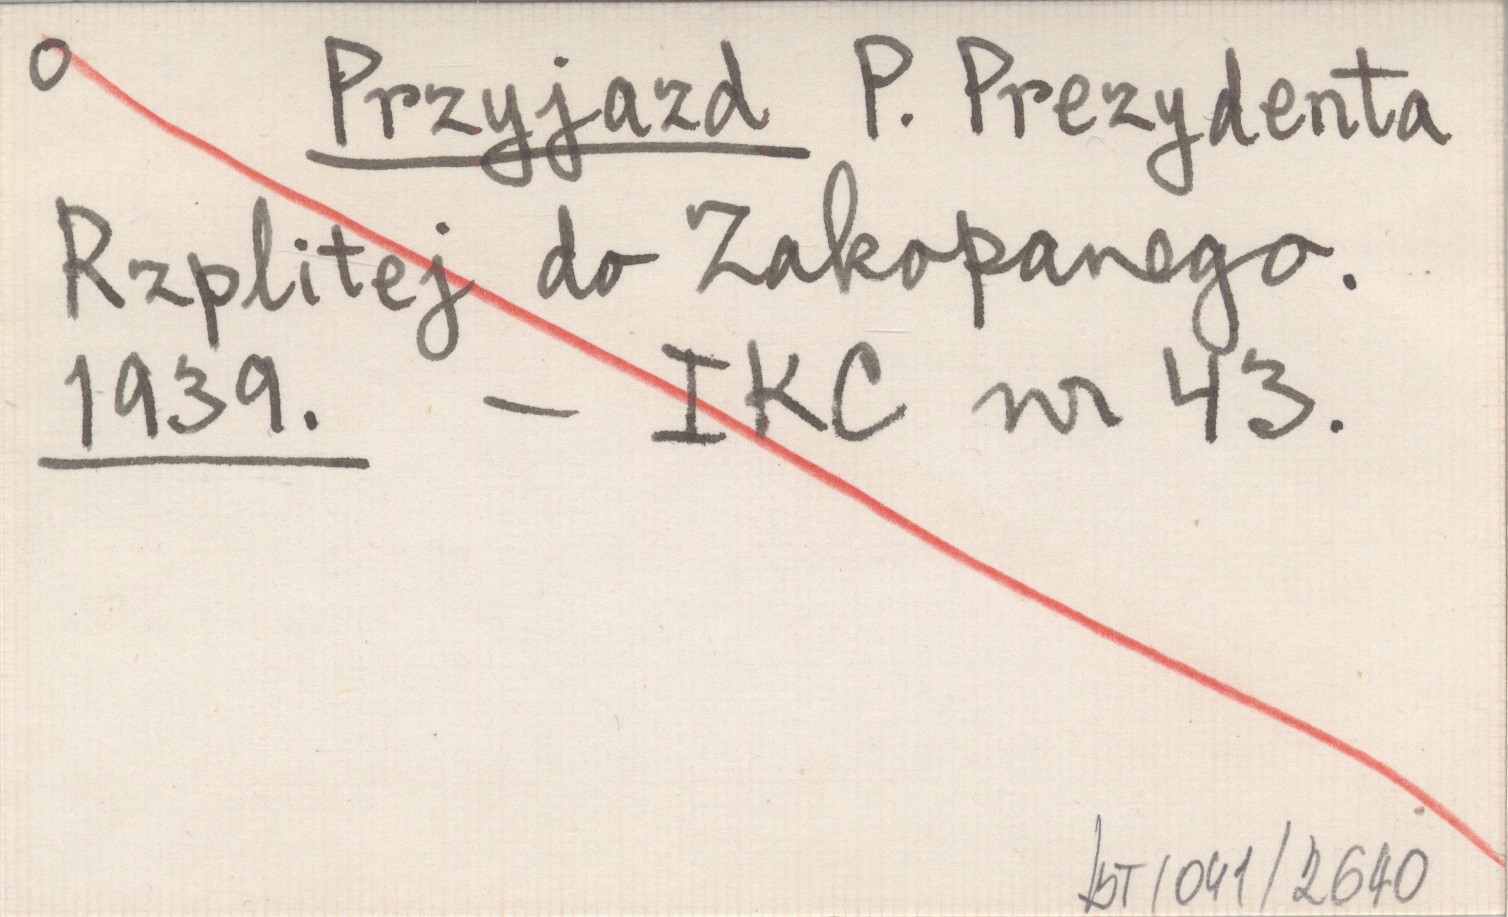 o Przyjazd P. Prezydenta
Rzplitej do Zakopanego.
1939. — IKC nr 43.
/041/2640